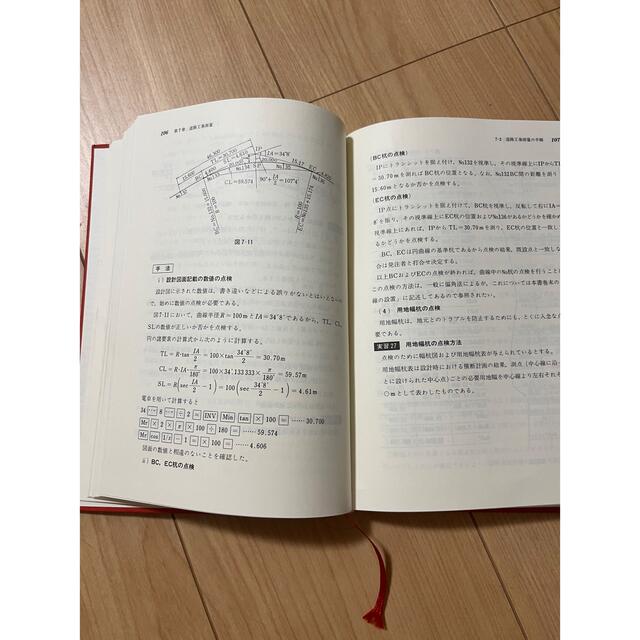 106 第7章 道路工事測量
40.300
TL=30.700
SL=4.610
IP
IA=34°8′
30.700
20.000
20.000
15.17
EC
No.132
No.134
SP
No.135
No.136
CL=59.574
90°+IA/2=107°4′
R=100
図7-11
手 法
(i) 設計図面記載の数値の点検
設計図に示された数値は,書き違いなどによる誤りがないとはいえないの
で,始めに数値の点検が必要である.
図7-11において,曲線半径R=100mとIA=34°8′であるから,TL,CL,
SLの数値が正しいか否かを点検する.
円の諸要素の計算式から次のように計算する.
TL=R・tan IA/2=100×tan 34°8′/2=30.70m
CL=R・IA・π/180°=100×34°.133333×π/180°=59.57m
SL=R(sec IA/2−1)=100(sec 34°8′/2−1)=4.61m
電卓を用いて計算すると
34 °′″ 8 °′″ ÷ 2 = INV Min tan × 100 = ……30.700
Mr × 2 × π × 100 ÷ 180 = ……59.574
Mr cos 1/x − 1 = × 100 = ……4.606
図面の数値と相違のないことを確認した.
ii) BC,EC杭の点検
7-2 道路工事測量の手順 107
(BC杭の点検)
IPにトランシットを据え付け,No.132を視準し,その視準線上にIPからTL
=30.70mを測ればBC杭の位置となる.なお,No.132BC間の距離を測り
15.60mとなるか否かを点検する.
(EC杭の点検)
IP点にトランシットを据え付けて,BC杭を視準し,反転して右にIA=
8′を振り,その視準線上にEC杭の位置およびNo.136があるかどうかを確かめ
視準線上にあれば,IPからTL=30.70mを測り,EC杭の位置と一致し
るかどうかを点検する.
BC,ECは円曲線の基準杭であるから点検の結果,既設点と一致しな
合は発注者と打合せ決定する.
以上BCおよびECの点検が終われば,曲線中のNo.杭の点検を行うこと
この点検の方法は,一般に偏角法によるが,これについては本書巻末の
線の設置」に記述してあるので参照されたい.
(4) 用地幅杭の点検
用地幅杭は,地元とのトラブルを防止するためにも,とくに入念な点
要である.
実習27 用地幅杭の点検方法
点検のために幅杭図および用地幅杭表が与えられているとする.
用地幅杭表は設計時における横断計画の結果,測点(中心線に沿っ
とに設けられた中心点)ごとの必要用地幅を中心線より左右それぞ
○mとして表わしたものである.